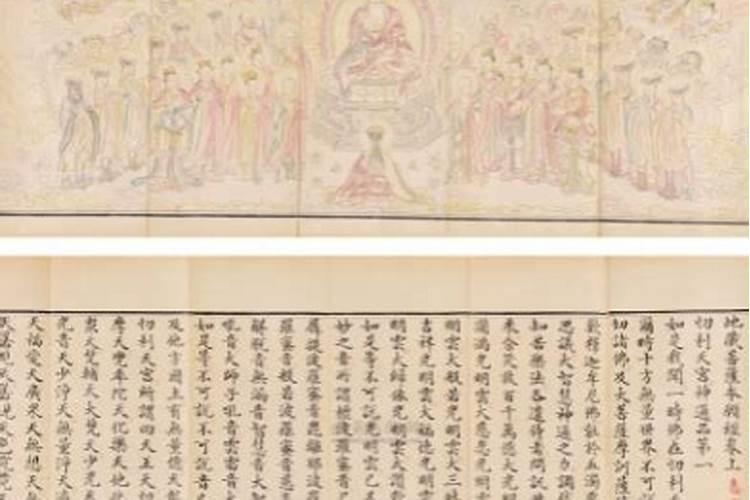 地藏菩薩本願經卷上
忉利天宮神通品第一
如是我聞一時佛在忉利
爾時十方無量世界不可
切諸佛及大菩薩摩訶薩
歎釋迦牟尼佛能於五濁
思議大智慧神通之力調
知苦樂法各遣侍者問訊
來含笑放百千萬億大光
圓滿光明雲大慈悲光明
明雲大般若光明雲大三昧
吉祥光明雲大福德光明
明雲大歸依光明雲大讚
如是等不可說光明雲已
妙之音所謂檀波羅蜜音
羼提波羅蜜音毗離耶波
羅蜜音般若波羅蜜音慈
解脫音無漏音智慧音大智
吼音大師子吼音雲雷音大
如是等不可說不可說音已
及他方國土有無量億天龍
忉利天宮所謂四天王天忉
摩天兜率陀天化樂天他
眾天梵輔天大梵天少光天
光音天少淨天無量淨天
天福愛天廣果天無想天